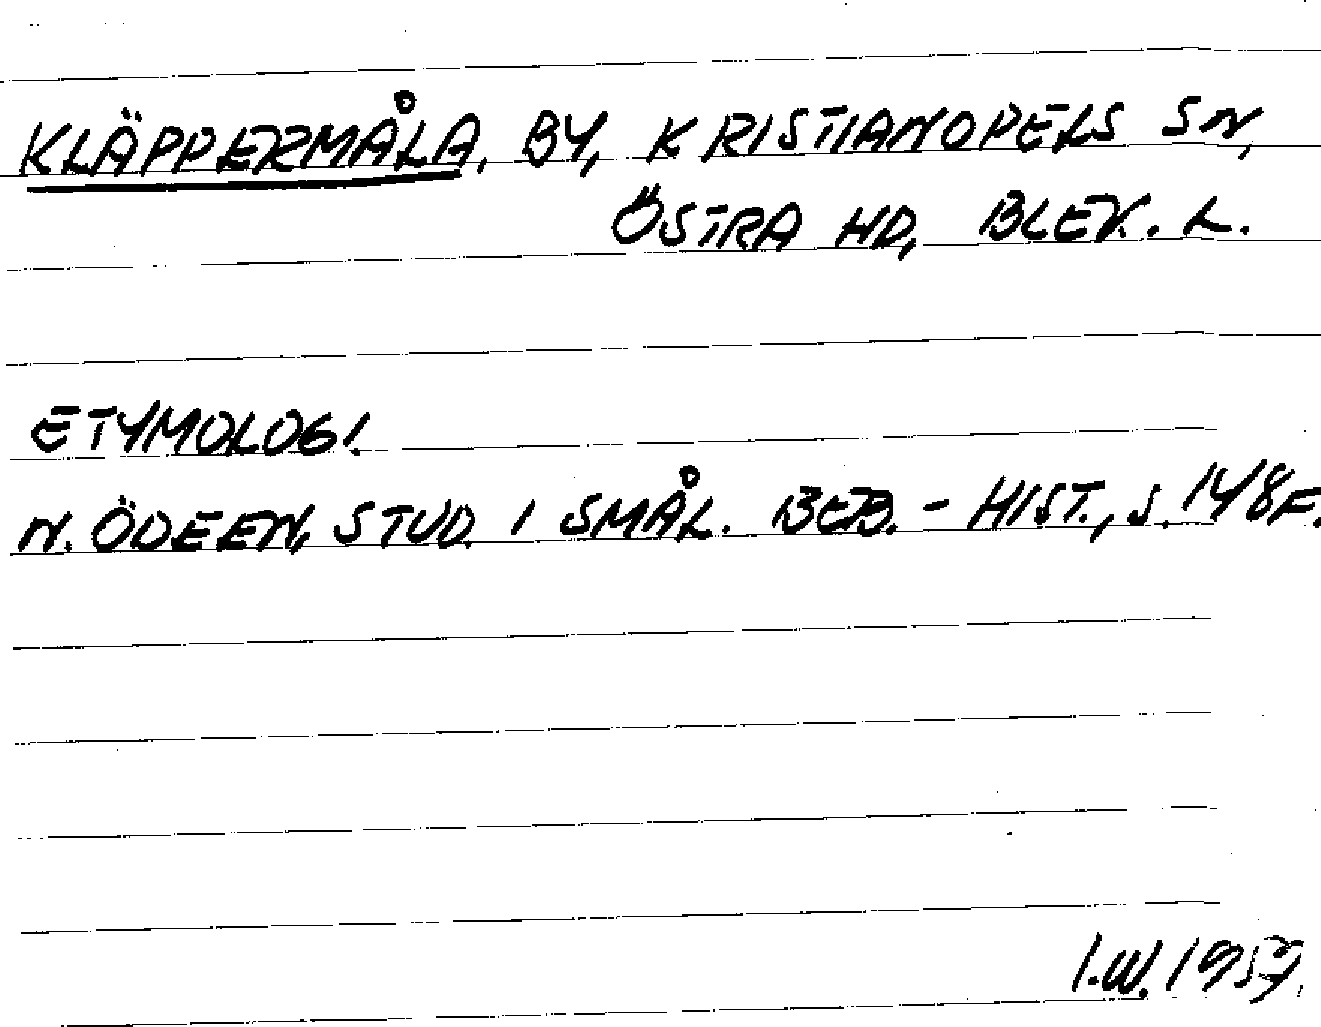 KLÄPPERMÅLA, BY, KRISTIANOPELS SN,
ÖSTRA HD, BLEK. L.
ETYMOLOGI.
N. ÖDEEN, STUD. I SMÅL. BEB.-HIST., S. 148F.
I.W. 1957.